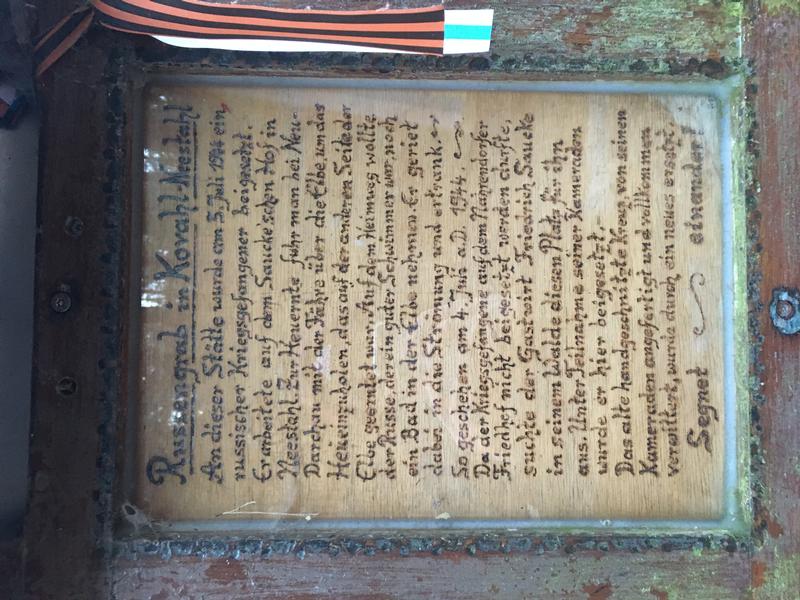 Russengrab in Kovahl-Neestahl
An dieser Stätte wurde am 5. Juli 1944 ein,
russischer Kriegsgefangener beigesetzt.
Er arbeitete auf dem Saucke'schen Hof in
Neestahl. Zur Heuernte fuhr man bei Neu-
Darchau mit der Fähre über die Elbe, um das
Heu einzuholen, das auf der anderen Seite der
Elbe geerntet war. Auf dem Heimweg wollte
der Russe, der ein guter Schwimmer war, noch
ein Bad in der Elbe nehmen. Er geriet
dabei in die Strömung und ertrank.
So geschehen am 4. Juli a.D. 1944.
Da der Kriegsgefangene auf dem Nahrendorfer
Friedhof nicht beigesetzt werden durfte,
suchte der Gastwirt Friedrich Saucke
in seinem Walde diesen Platz für ihn
aus. Unter Teilnahme seiner Kameraden
wurde er hier beigesetzt.-
Das alte handgeschnitzte Kreuz, von seinen
Kameraden angefertigt und vollkommen
verwittert, wurde durch ein neues ersetzt.
Segnet einander!